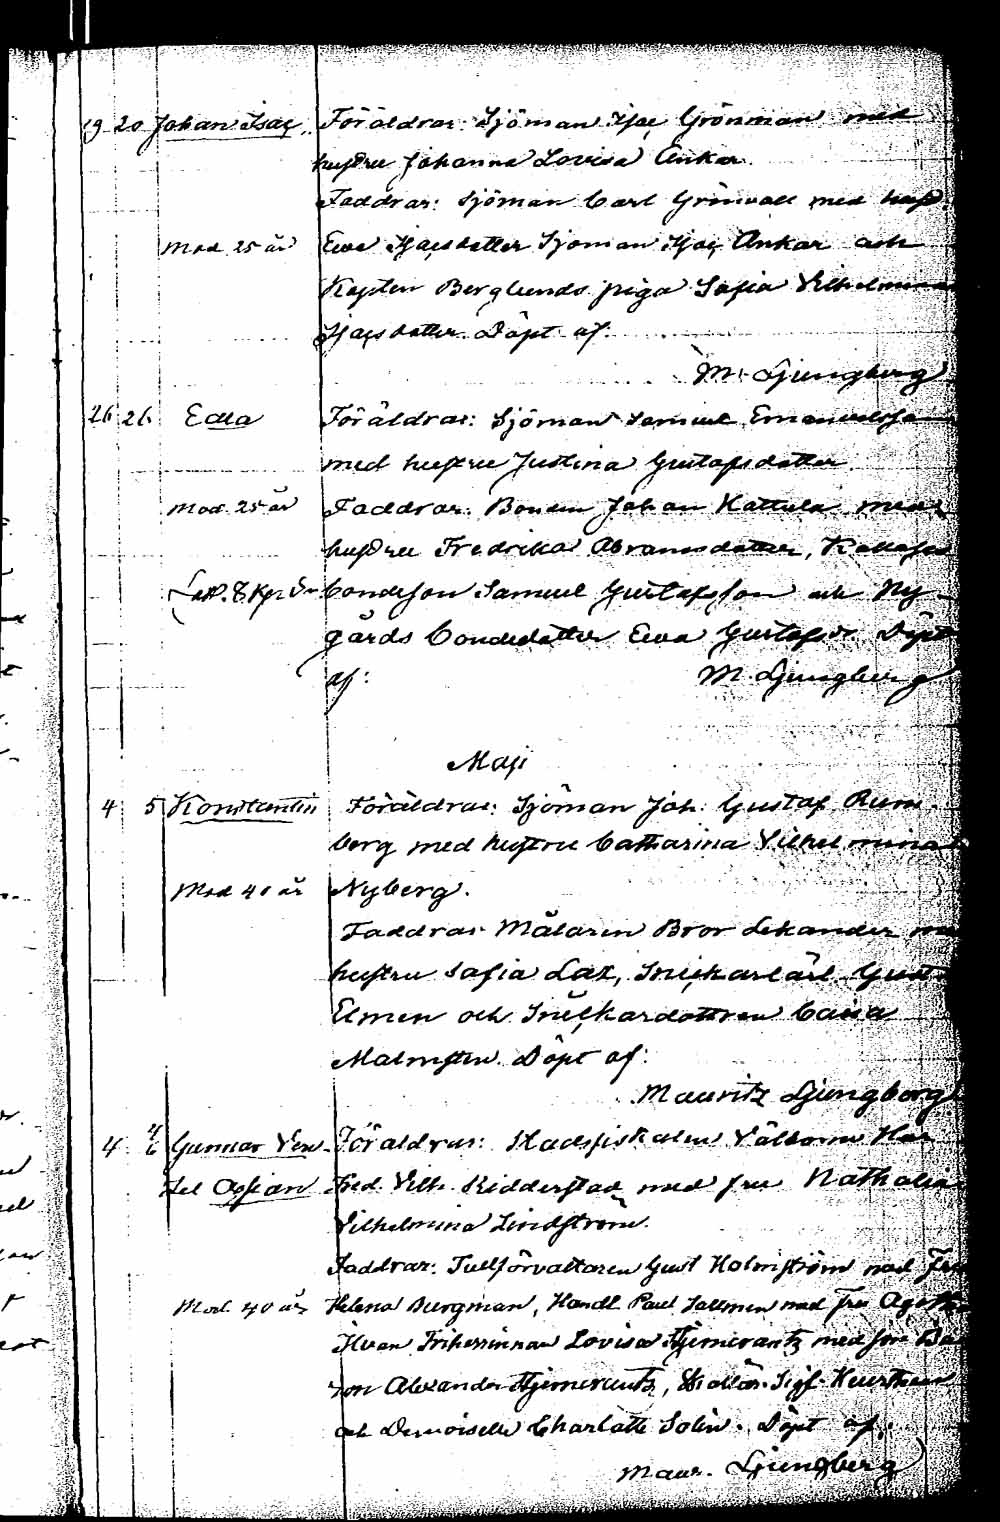 19 20 Johan Isac. Föräldrar: Sjöman Isac Grönman med
hustru Johanna Lovisa Ankar.
Faddrar: Sjöman Carl Grönvall med hust.
Mod. 25 år Ewa Isacsdotter Sjöman Isac Ankar och
Kapten Berglunds piga Sofia Vilhelmina
Isacsdotter. Döpt af:
M. Ljungberg
26 26 Edla Föräldrar: Sjöman Samuel Emanuelsson
med hustru Justina Gustafsdotter
Mod. 25 år Faddrar: Bonden Johan Kattula med
hustru Fredrika Abramsdotter,
bondeson Samuel Gustafsson och Ny-
gårds bondedotter Ewa Gustafsdr. Döpt
af: M. Ljungberg
Maji
4 5 Konstantin Föräldrar: Sjöman Joh. Gustaf Rum-
berg med hustru Catharina Vilhelmina
Mod 40 år Nyberg.
Faddrar: Målaren Bror Lekander med
hustru Sofia Lax, Snickarlärl. Gust.
Elmen och Snickardottren Caisa
Malmsten. Döpt af:
Mauritz Ljungberg
4 4/6 Gunnar Ven- Föräldrar: Stadsfiskalen Välborne Herr
zel Ossian Fred. Vilh. Ridderstad med fru Nathalia
Vilhelmina Lindström.
Faddrar: Tullförvaltaren Gust Holmström med Fru
Mod. 40 år Helena Burgman, Handl. Paul Sallmén med Fru
Friherrinnan Lovisa Stjernvantz med son Ba-
ron Alexander Stjernvantz,
och Demoiselle Charlotte Solin. Döpt af:
Maur. Ljungberg